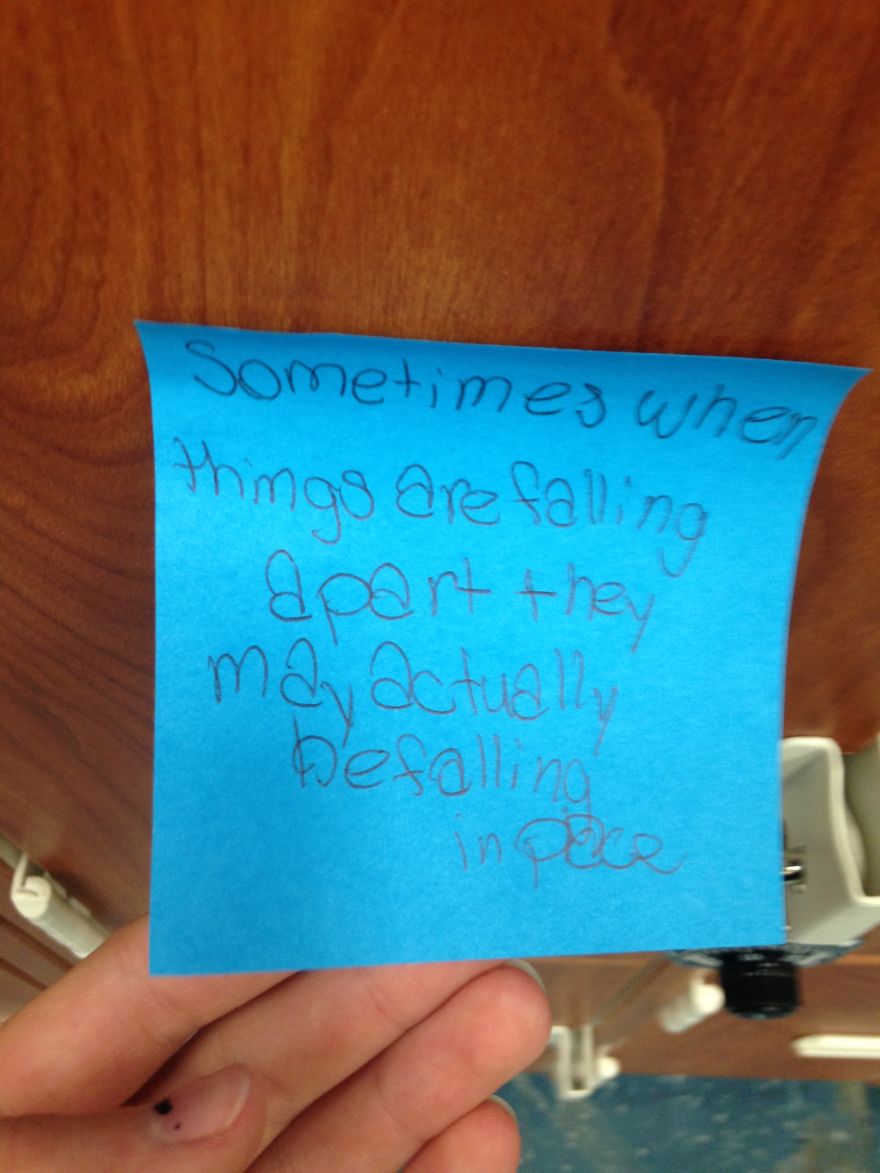 Sometimes when
things are falling
apart they
may actually
be falling
in place